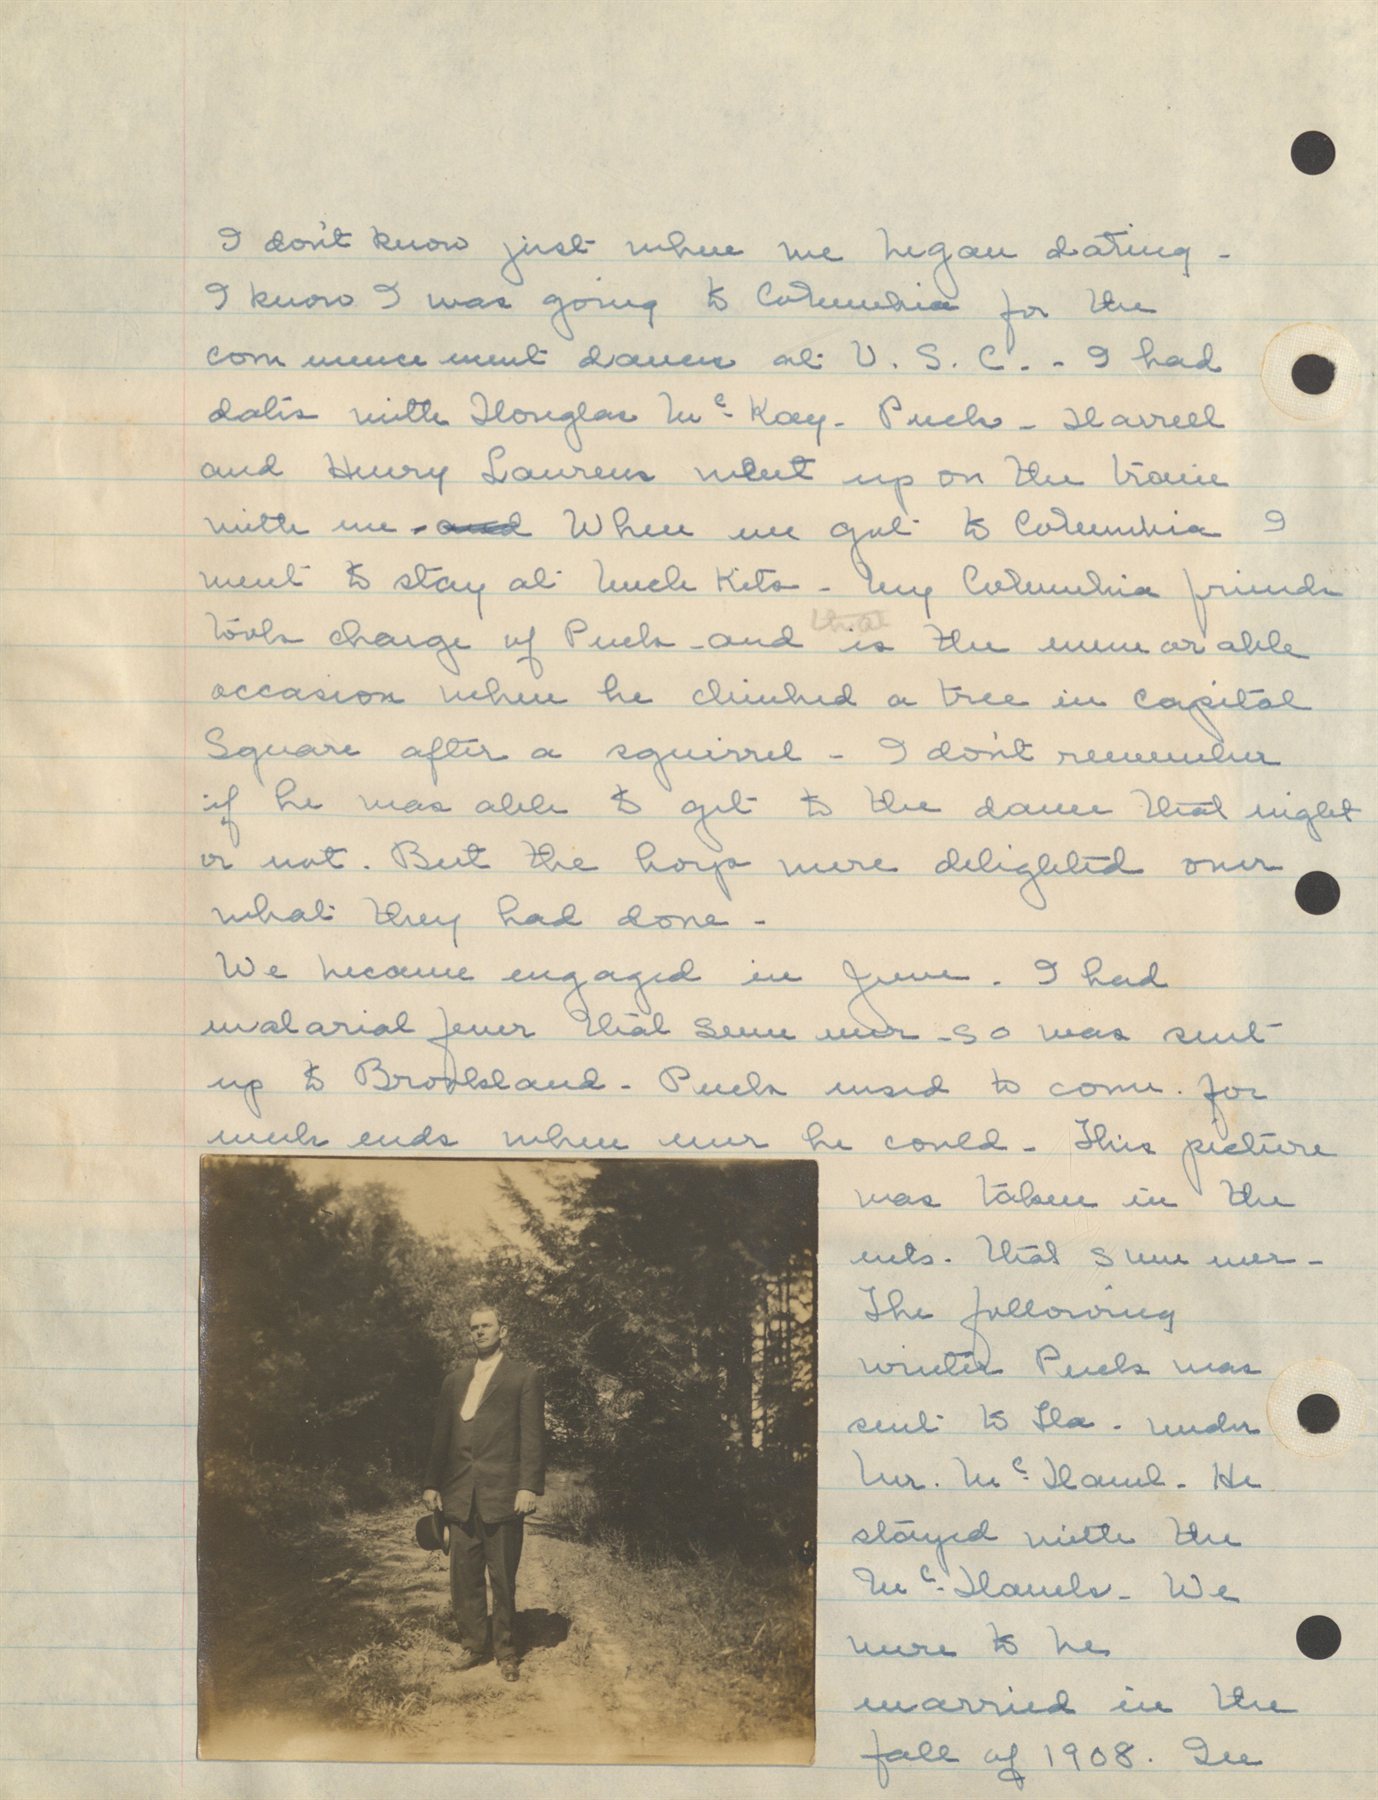 I don't know just when we began dating -
I know I was going to Columbia for the
commencement dances at U. S. C. - I had
dates with Douglas Mc Kay - Puck - Darrell
and Henry Laurens went up on the train
with me. and When we got to Columbia I
went to stay at Uncle Kits - My Columbia friends
took charge of Puck - and that is the memorable
occasion when he climbed a tree in Capital
Square after a squirrel - I don't remember
if he was able to get to the dance that night
or not. But the boys were delighted over
what they had done -
We became engaged in June. I had
malarial fever that summer - so was sent
up to Brookland - Puck used to come for
week ends when ever he could - This picture
was taken in the
mts. that summer -
The following
winter Puck was
sent to Fla - under
Mr. Mc - He
stayed with the
Mc - We
were to be
married in the
fall of 1908. In